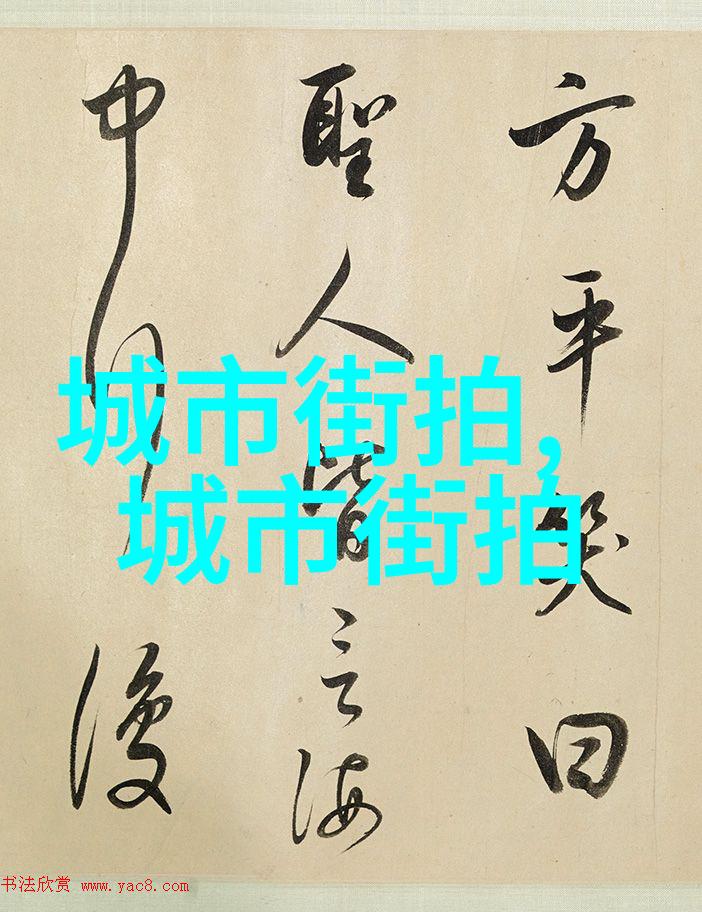 方平笑曰
聖人皆言海
中復
城市街拍,
城市街拍
书法欣赏 www.yac8.com